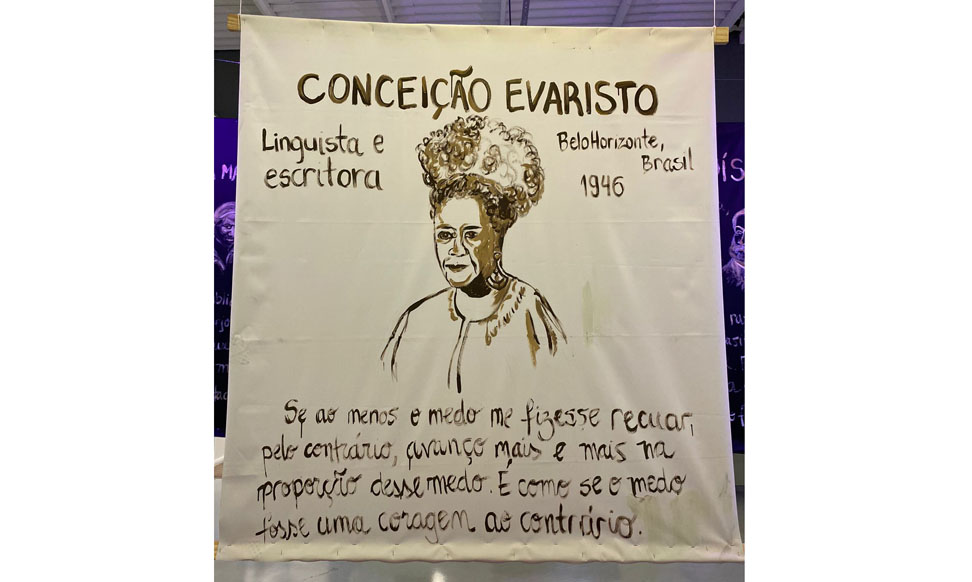 CONCEIÇÃO EVARISTO
Linguista e
escritora
BeloHorizonte,
Brasil
1946
Se ao menos o medo me fizesse recuar,
pelo contrário, avanço mais e mais na
proporção desse medo. É como se o medo
fosse uma coragem ao contrário.